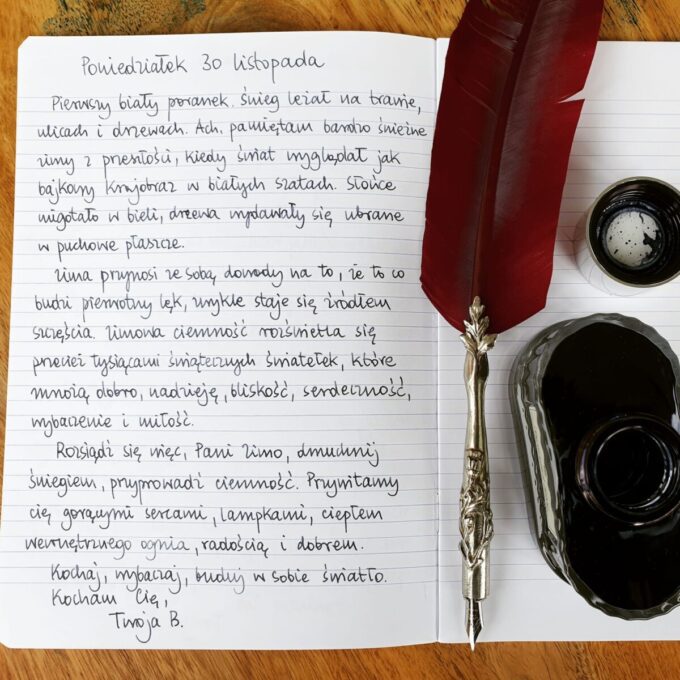 Poniedziałek 30 listopada
Pierwszy biały poranek. Śnieg leżał na trawie,
ulicach i drzewach. Ach, pamiętam bardzo śnieżne
zimy z przeszłości, kiedy świat wyglądał jak
bajkowy krajobraz w białych szatach. Słońce
migotało w bieli, drzewa wydawały się ubrane
w puchowe płaszcze.
Zima przynosi ze sobą dowody na to, że to co
budzi pierwotny lęk, zwykle staje się źródłem
szczęścia. Zimowa ciemność rozświetla się
przecież tysiącami świątecznych światełek, które
mnożą dobro, nadzieję, bliskość, serdeczność,
wybaczenie i miłość.
Rozsiądź się więc, Pani Zimo, dmuchnij
śniegiem, przyprowadź ciemność. Przywitamy
cię gorącymi sercami, lampkami, ciepłem
wewnętrznego ognia, radością i dobrem.
Kochaj, wybaczaj, buduj w sobie światło.
Kocham Cię,
Twoja B.